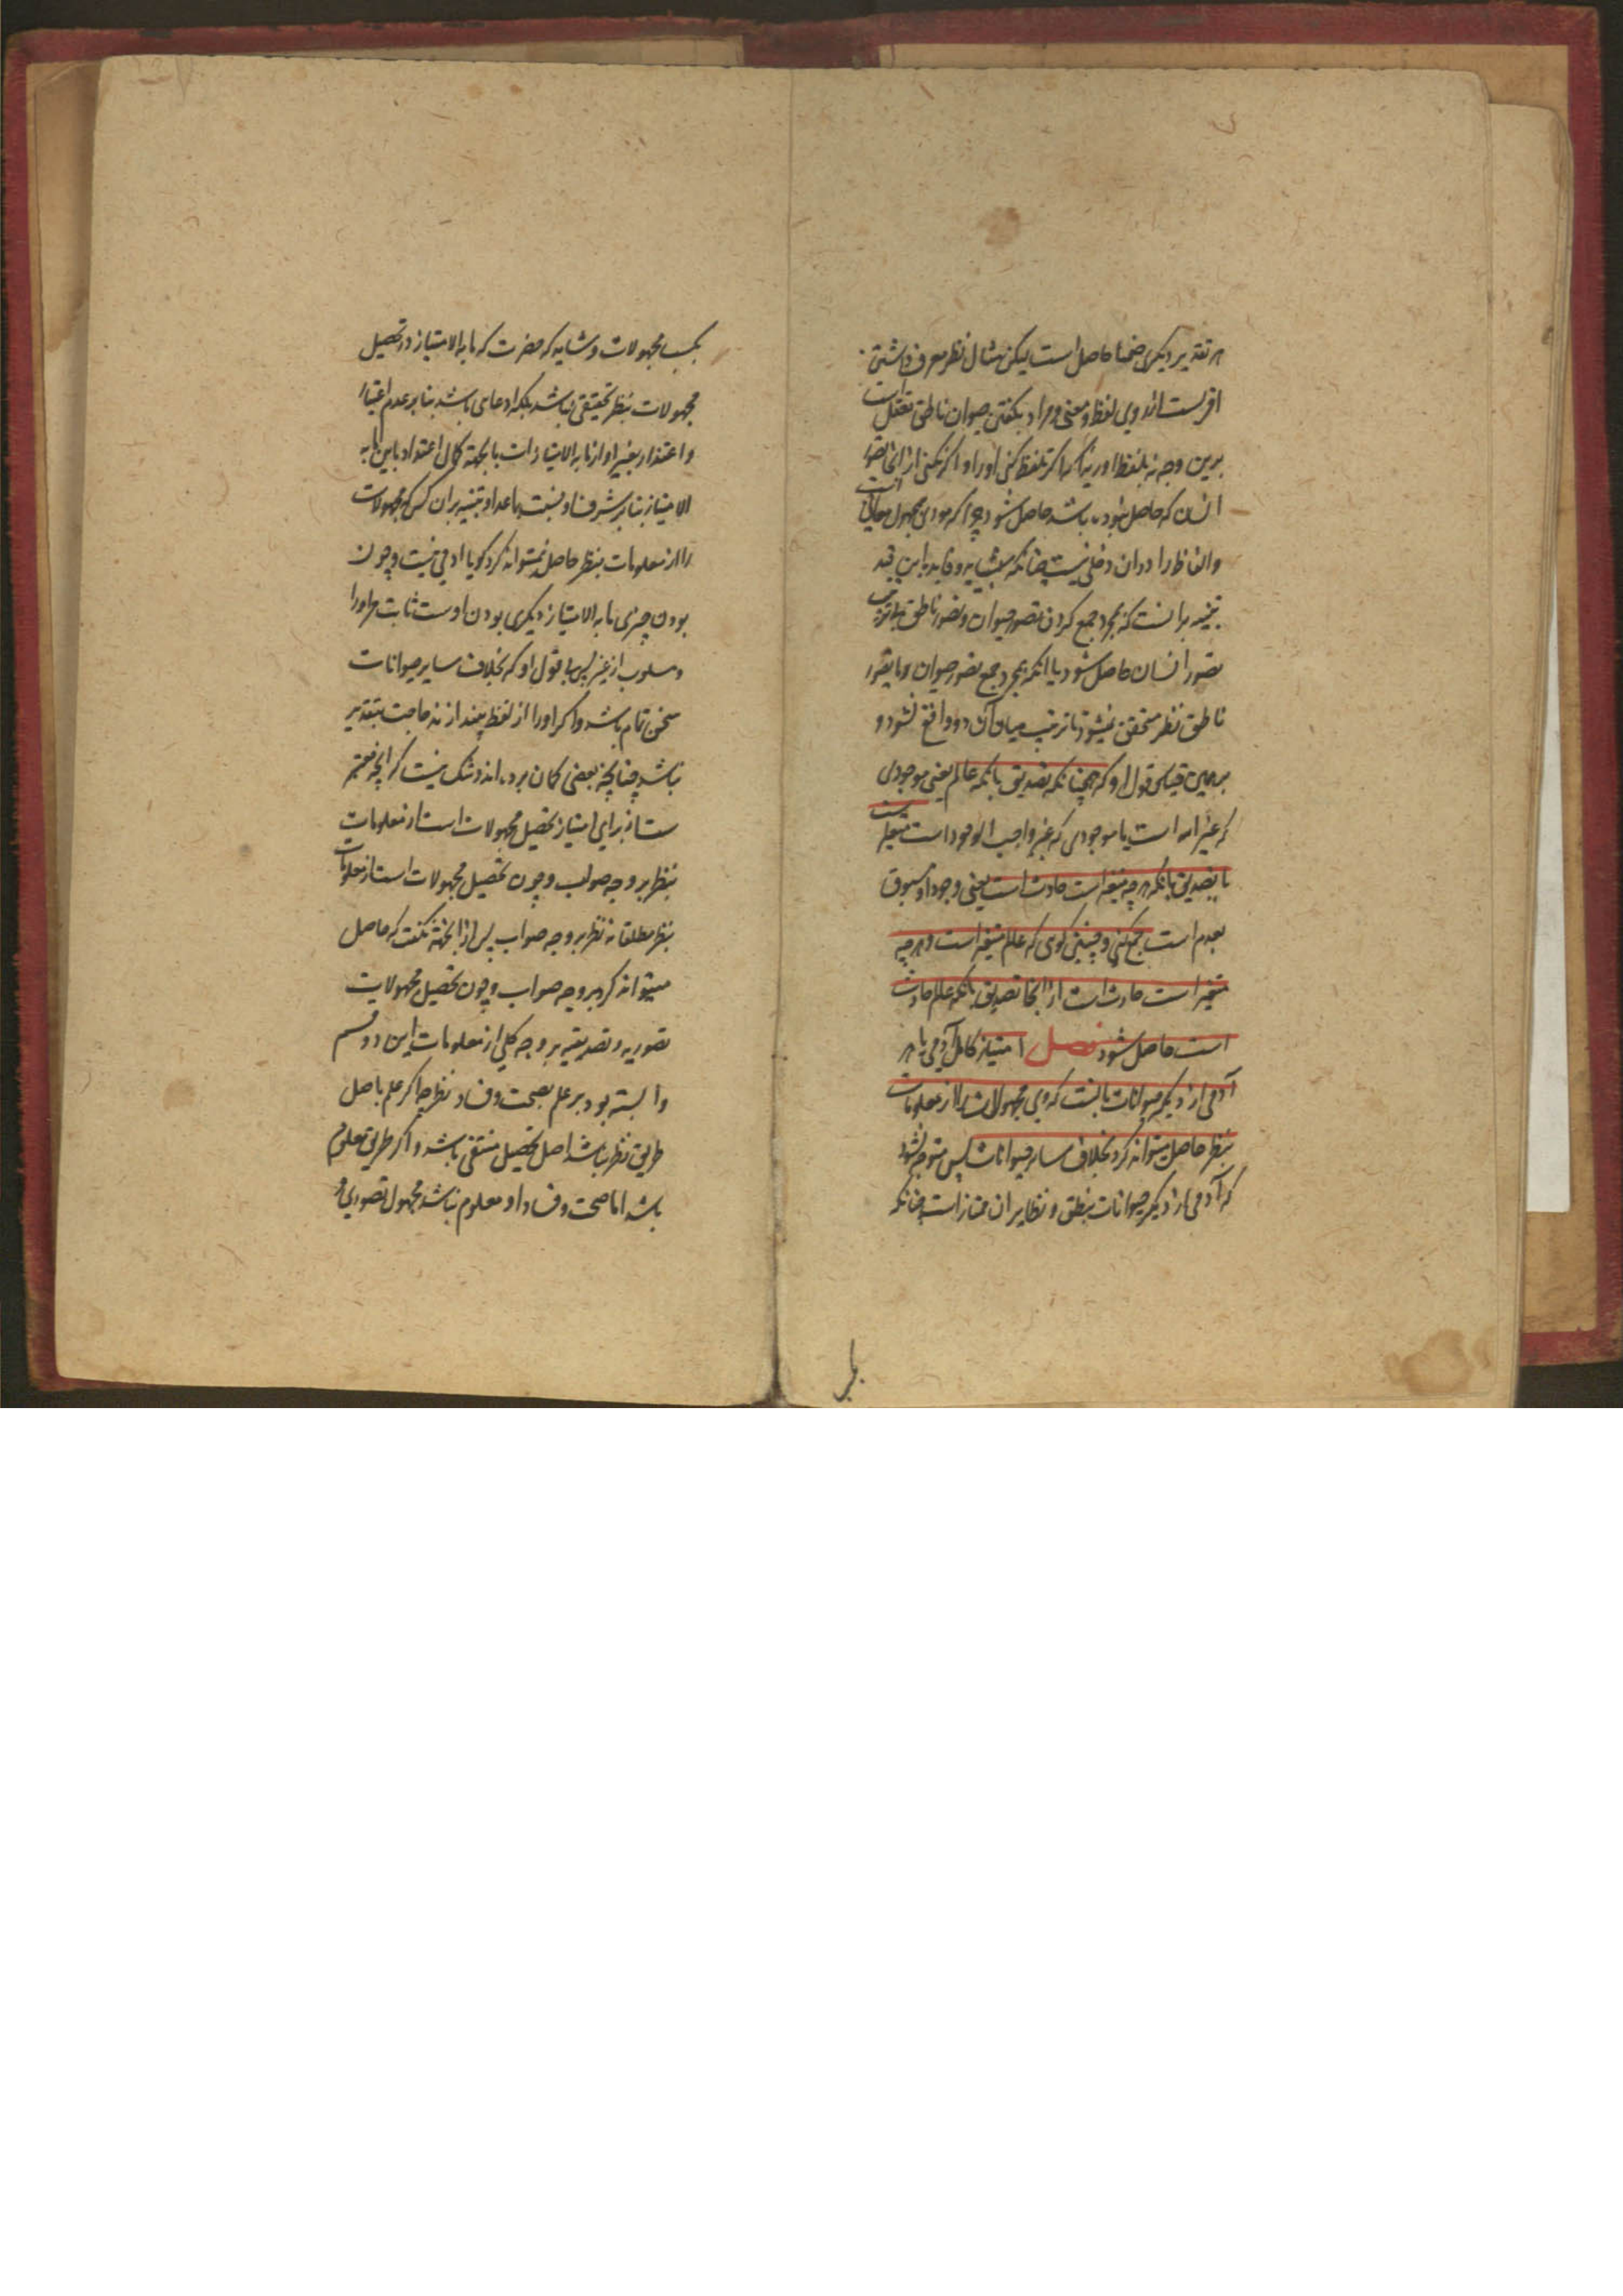 هر تقدیر دیگری ضمنا حاصل است لیکن مثال نظر معرف داشتن
اقربست از روی لفظ و معنی و مراد بگفتن حیوان ناطق تعقل است
برین وجه نه بلفظ اوریدن اگر تلفظ کنی اورا و اگر نکنی از انجا تصور
انسان که حاصل نبوده باشد حاصل شود چرا که مودی مجهول معانی است
والفاظ را دران دخلی نیست چنانکه
تنبیه برانست که بمجرد جمع کردن تصور حیوان و تصور ناطق بی ترتیب
تصور انسان حاصل شود یا انکه بمجرد جمع تصور حیوان و با تصور
ناطق نظر متحقق نمیشود تا ترتیب میان آن دو واقع نشود و
برهمین قیاس قول او که همچنانکه تصدیق بانکه عالم یعنی موجودی
که غیر الله است یا موجودی که غیر واجب الوجود است متغیر است
با تصدیق بانکه هر چه متغیر است حادث است یعنی وجود او مسبوق
بعدم است جمع کنی و چنین گوی که عالم متغیر است و هر چه
متغیر است حادث است از انجا تصدیق بانکه عالم حادث
است حاصل شود فصل امتیاز کامل آدمی با هر
آدمی از دیگر حیوانات بانست که وی مجهولات را از معلومات
بنظر حاصل میتواند کرد بخلاف سایر حیوانات پس متوجه نشود
که آدمی از دیگر حیوانات بنطق و نظایر ان ممتاز است چنانکه
بر
بکسب مجهولات و شاید که حضرت که ما به الامتیاز در تحصیل
مجهولات بنظر تحقیقی نباشد بلکه ادعای باشد بنابر عدم اعتبار
و اعتداد بغیر او از ما به الامتیازات یا بجهة کمال اعتداد باین ما به
الامتیاز بنابر شرف او نسبت بماعدا و تنبیه بران کس که مجهولات
را از معلومات بنظر حاصل نمیتواند کرد کویا ادمی نیست و چون
بودن چیزی ما به الامتیاز دیگری بودن اوست ثابت مر اورا
و مسلوب از غیر پس بی قول او که بخلاف سایر حیوانات
سخن تمام باشد و اگر اورا از لفظ بیندازند حاجت بتقدیر
نباشد چنانچه بعضی کمان برده اند و شک نیست که انچه معتبر
ست از برای امتیاز تحصیل مجهولات است از معلومات
بنظر بر وجه صواب و چون تحصیل مجهولات است از معلومات
بنظر مطلقا نه نظر بر وجه صواب پس از انجهة نگفت که حاصل
میتواند کرد بر وجه صواب و چون تحصیل مجهولات
تصوریه و تصدیقیه بر وجه کلی از معلومات این دو قسم
وابسته بود بر علم بصحت و فساد نظر چه اگر علم باصل
طریق نظر نباشد اصل تحصیل منتفی باشد و اگر طریق معلوم
باشد اما صحت و فساد او معلوم نباشد مجهول تصوری و